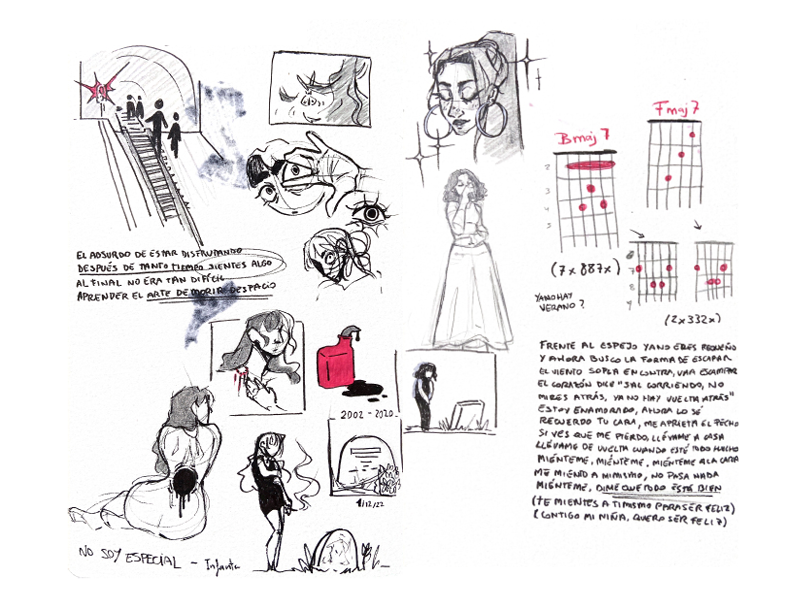 EL ABSURDO DE ESTAR DISFRUTANDO
DESPUÉS DE TANTO TIEMPO SIENTES ALGO
AL FINAL NO ERA TAN DIFÍCIL
APRENDER EL ARTE DE MORIR DESPACIO
2002 - 2020
1/12/22
NO SOY ESPECIAL -
Bmaj7
Fmaj7
2
3
4
5
(7x887x)
7
8
9
(2x332x)
YA NO HAY
VERANO?
FRENTE AL ESPEJO YA NO ERES PEQUEÑO
Y AHORA BUSCO LA FORMA DE ESCAPAR
EL VIENTO SOPLA EN CONTRA, VA A ESCAMPAR
EL CORAZÓN DICE "SAL CORRIENDO, NO
MIRES ATRÁS, YA NO HAY VUELTA ATRÁS"
ESTOY ENAMORADO, AHORA LO SÉ
RECUERDO TU CARA, ME APRIETA EL PECHO
SI VES QUE ME PIERDO, LLÉVAME A CASA
LLÉVAME DE VUELTA CUANDO ESTÉ TODO HECHO
MIÉNTEME, MIÉNTEME, MIÉNTEME A LA CARA
ME MIENTO A MI MISMO, NO PASA NADA
MIÉNTEME, DIME QUE TODO ESTÁ BIEN
(TE MIENTES A TI MISMO PARA SER FELIZ)
(CONTIGO MI NIÑA, QUIERO SER FELIZ)